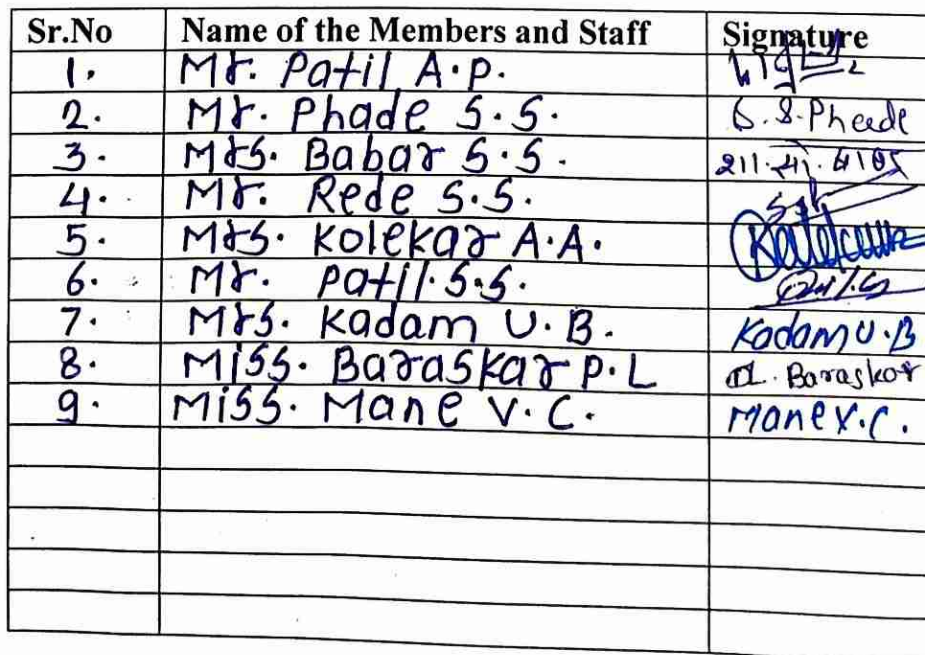 Sr.No Name of the Members and Staff Signature
1. Mr. Patil A.P.
2. Mr. Phade S.S. S.S.Phade
3. Mrs. Babar S.S.
4. Mr. Rede S.S.
5. Mrs. Kolekar A.A.
6. Mr. Patil.S.S.
7. Mrs. Kadam U.B. Kadam U.B
8. Miss. Baraskar P.L Baraskar
9. Miss. Mane V.C. Mane V.C.